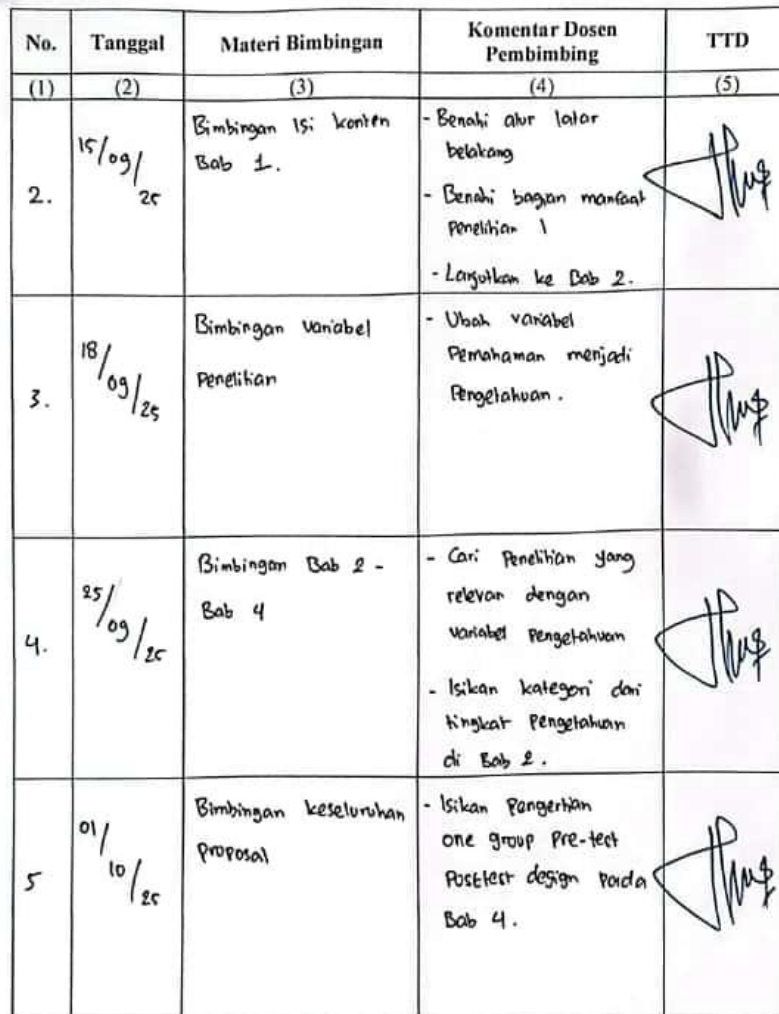 No. Tanggal Materi Bimbingan Komentar Dosen Pembimbing TTD
(1) (2) (3) (4) (5)
2.
15/09/25
Bimbingan isi konten
Bab 1.
- Benahi alur latar
belakang
- Benahi bagian manfaat
penelitian 1
- Lanjutkan ke Bab 2.
3.
18/09/25
Bimbingan variabel
Penelitian
- Ubah variabel
Pemahaman menjadi
Pengetahuan.
4.
25/09/25
Bimbingan Bab 2 -
Bab 4
- Cari Penelitian yang
relevan dengan
variabel Pengetahuan
- Isikan kategori dari
tingkat Pengetahuan
di Bab 2.
5
01/10/25
Bimbingan keseluruhan
proposal
- Isikan Pengertian
one group Pre-test
Posttest design pada
Bab 4.